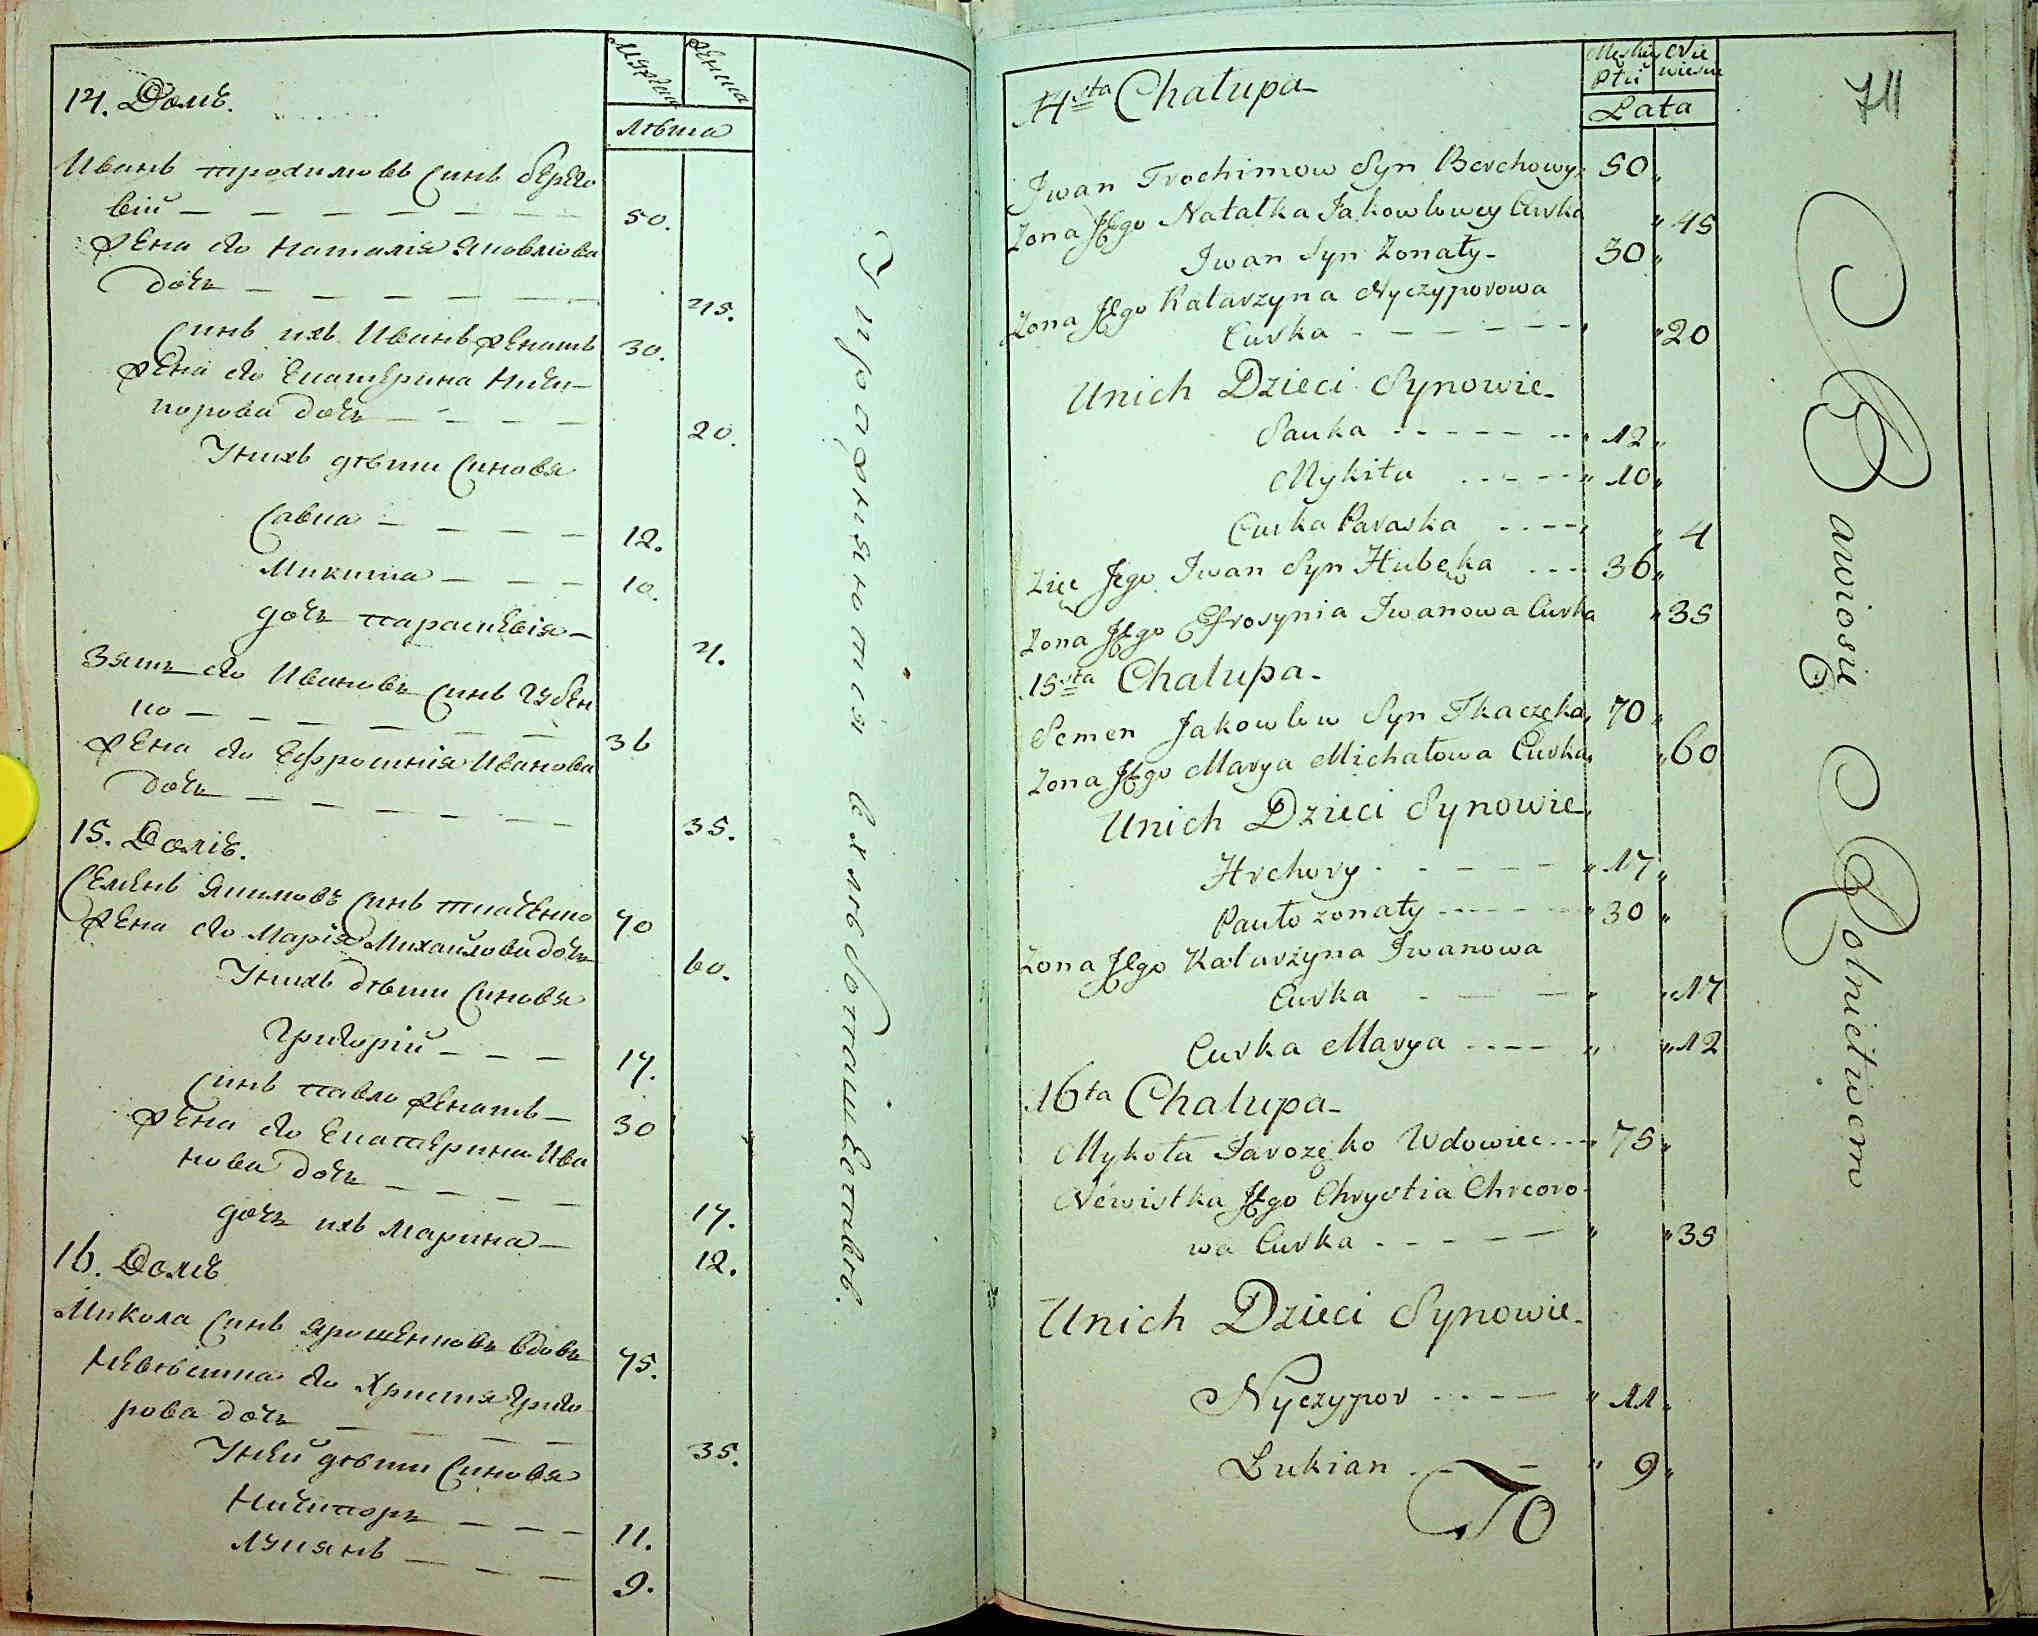 Мужска
Женска
Лѣта
14. Домъ.
Иванъ трохимовъ Синъ берхо
вій — — — — — — 50.
Жена его Наталія Яковлѣва
дочъ — — — — — — 45.
Синъ ихъ Иванъ женатъ 30.
Жена его Екатерина Ничи-
порова дочъ — — — — 20.
Унихъ дѣти Синовя
Савка — — — — 12.
Микита — — — 10.
дочъ параскевія — 4.
Зять его Ивановъ Синъ Губен
ко — — — — — 36
Жена его Ефросинія Иванова
дочъ — — — — — — 35.
15. Домъ.
Семенъ Якимовъ Синъ ткаченко 70
Жена его Марія Михайлова дочъ 60.
Унихъ дѣти Синовя
Григорій — — — 17.
Синъ павло женатъ — 30
Жена его Екатерина Ива
нова дочъ — — — — 17.
дочъ ихъ Марина — 12.
16. Домъ
Микола Синъ Ярошенковъ вдовъ 75.
Невѣстка его Христя Григо
рова дочъ — — — — 35.
Уней дѣти Синовя
Ничипоръ — — — 11.
Лукянъ — — — 9.
Упражняются въ хлѣбопашествѣ.
Męski Nie
Płci wiesci
Lata
14sta Chałupa-
Iwan Trochimow Syn Berchowy 50
Zona Jego Natalka Jakowlowey Curka 45
Iwan Syn Zonaty- 30
Zona Jego Katarzyna Nyczyporowa
Curka - - - - - - 20
Unich Dzieci Synowie-
Sauka - - - - - - 12
Mykita - - - - - 10
Curka Paraska - - - - 4
Zięć Jego Iwan Syn Hubęka - - - 36
Zona Jego Efrosynia Iwanowa Curka 35
15sta Chałupa-
Semen Jakowlow Syn Tkaczęka 70
Zona Jego Marya Michałowa Curka 60
Unich Dzieci Synowie
Hrehory - - - - - 17
Pauło zonaty - - - - - 30
Zona Jego Katarzyna Iwanowa
Curka - - - 17
Curka Marya - - - - 12
16ta Chałupa-
Mykoła Jarozęko Wdowiec - - - 75
Newistka Jego Chrystia Chreoro-
wa Curka - - - - - 35
Unich Dzieci Synowie-
Nyczypor - - - - 11
Łukian - - - 9
To
711
Bawiosię Rolnictwem